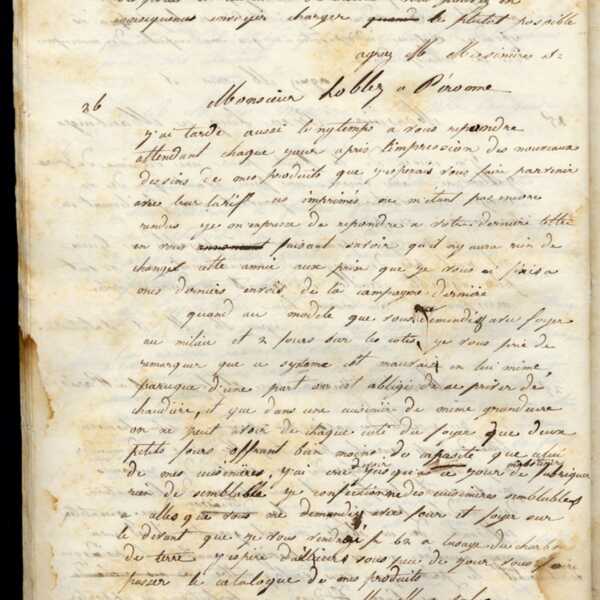 conséquence envoyer charger quand le plutot possible
agréez M Messimieux et
26 Monsieur Loblez a Péronne
j'ai tardé aussi longtemps a vous repondre
attendant chaque jour apris l'impression des nouveaux
dessins de mes produits que j'esperais vous faire parvenir
avec leur tariff. ces imprimés ne m'étant pas encore
rendus je m'empresse de repondre a votre derniere lettre
en vous annoncant faisant savoir qu'il n'y aura rien de
changé cette année aux prix que je vous ai fixés a
mes derniers envois de la campagne derniere
quand au modele que vous me demendiez avec foyer
au milieu et 2 fours sur les cotés, je vous prie de
remarquer que ce systeme est mauvais en lui même,
parceque d'une part on est obligé de se priver de
chaudiere, et que dans une cuisiniere de même grandeur
on ne peut avoir de chaque coté du foyer que deux
petits fours offrant bien moins de capasité que celui
de mes cuisinieres, j'ai cru devoir jusqu'a ce jour de fabriquer
rien de semblable je confectionne des cuisinieres semblables
a celles que vous me demandez avec four et foyer sur
le devant que je vous rendrai f 62 a l'usage du charbon
de terre j'espere d'ailleurs sous peu de jour vous faire
passer le catalogue de mes produits